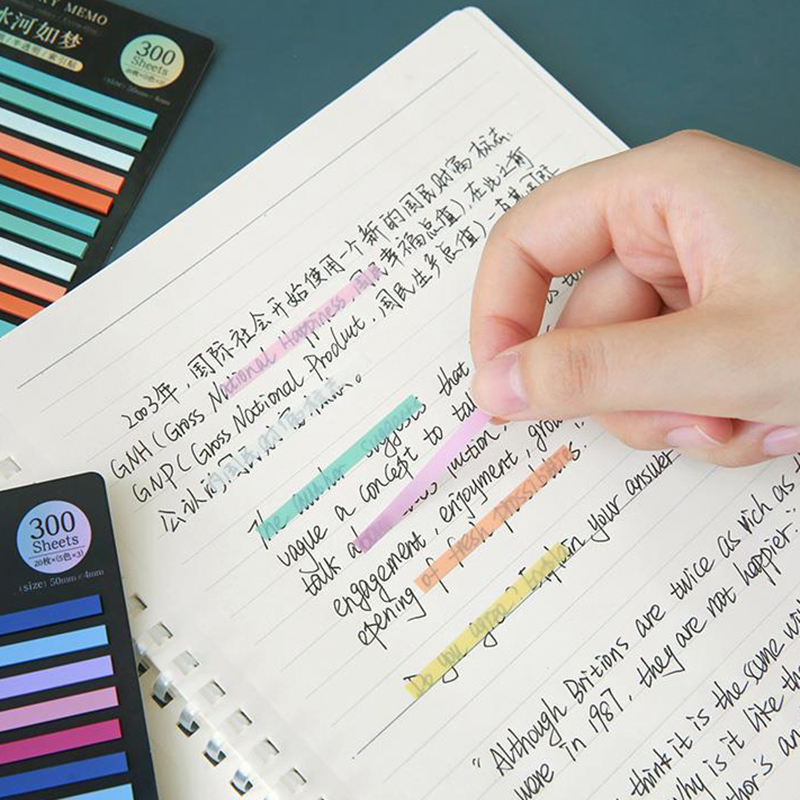 KY MEMO
冰河如梦
300
Sheets
2003年,国际社会开始使用一个新的国民财富标志:
GNH(Gross National Happiness,国民幸福总值).在此之前
GNP(Gross National Product.国民生产总值)一直是国际
公认的国
The author suggests that
vague a concept to talk
talk junction
engagement, enjoyment,
opening of fresh possibilities.
Do you agree? Explain your answer
"Although Britions are twice as rich as
were in 1987, they are not happier:
think it is the same
why is it like
300
Sheets
20枚×(5色×3)
(size) 50mm×4mm